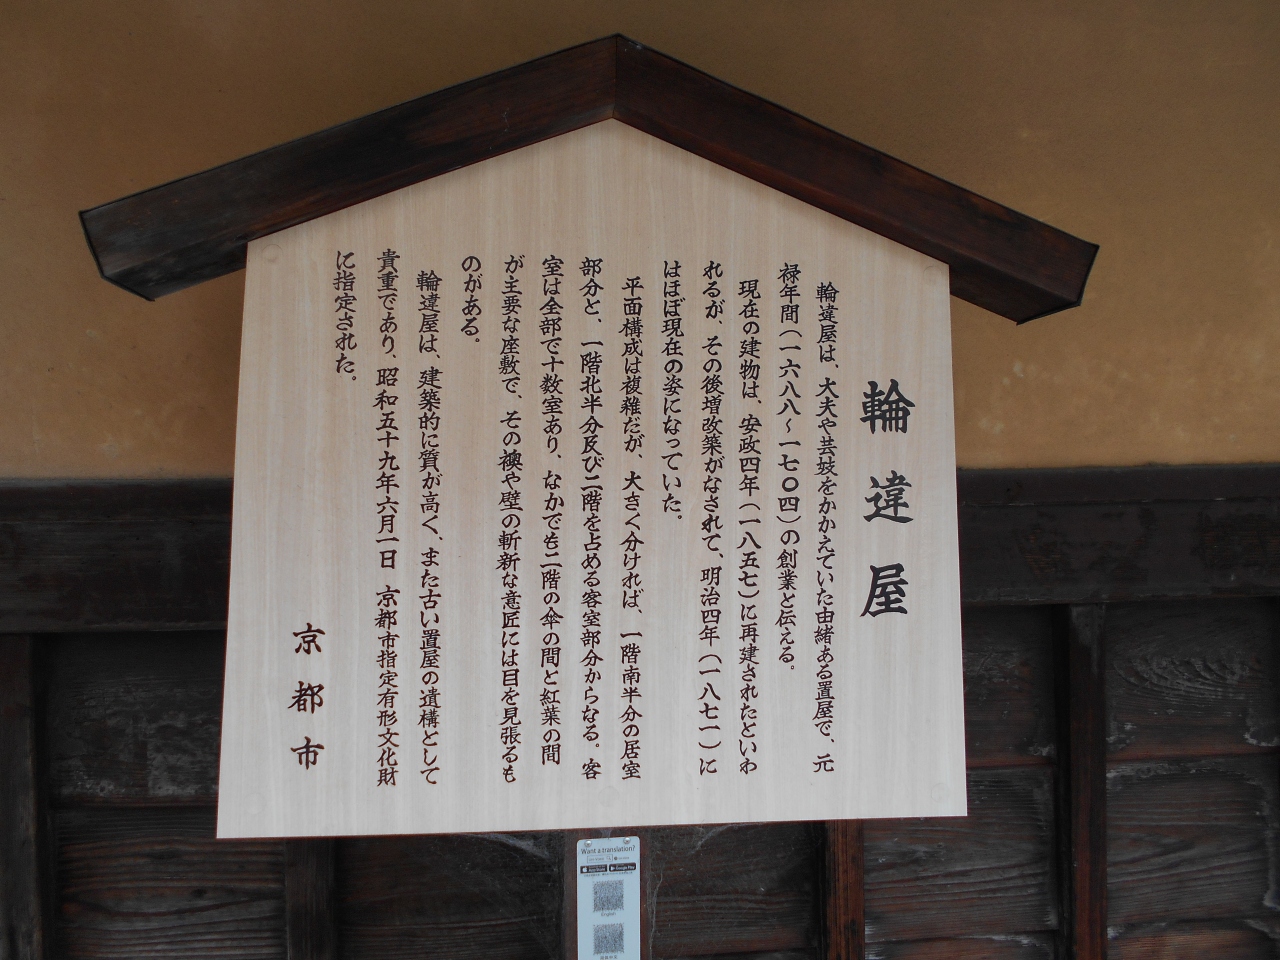 輪違屋
輪違屋は、大夫や芸妓をかかえていた由緒ある置屋で、元
禄年間（一六八八〜一七〇四）の創業と伝える。
現在の建物は、安政四年（一八五七）に再建されたといわ
れるが、その後増改築がなされて、明治四年（一八七一）に
はほぼ現在の姿になっていた。
平面構成は複雑だが、大きく分ければ、一階南半分の居室
部分と、一階北半分及び二階を占める客室部分からなる。客
室は全部で十数室あり、なかでも二階の傘の間と紅葉の間
が主要な座敷で、その襖や壁の斬新な意匠には目を見張るも
のがある。
輪違屋は、建築的に質が高く、また古い置屋の遺構として
貴重であり、昭和五十九年六月一日　京都市指定有形文化財
に指定された。
京都市
Want a translation?
English